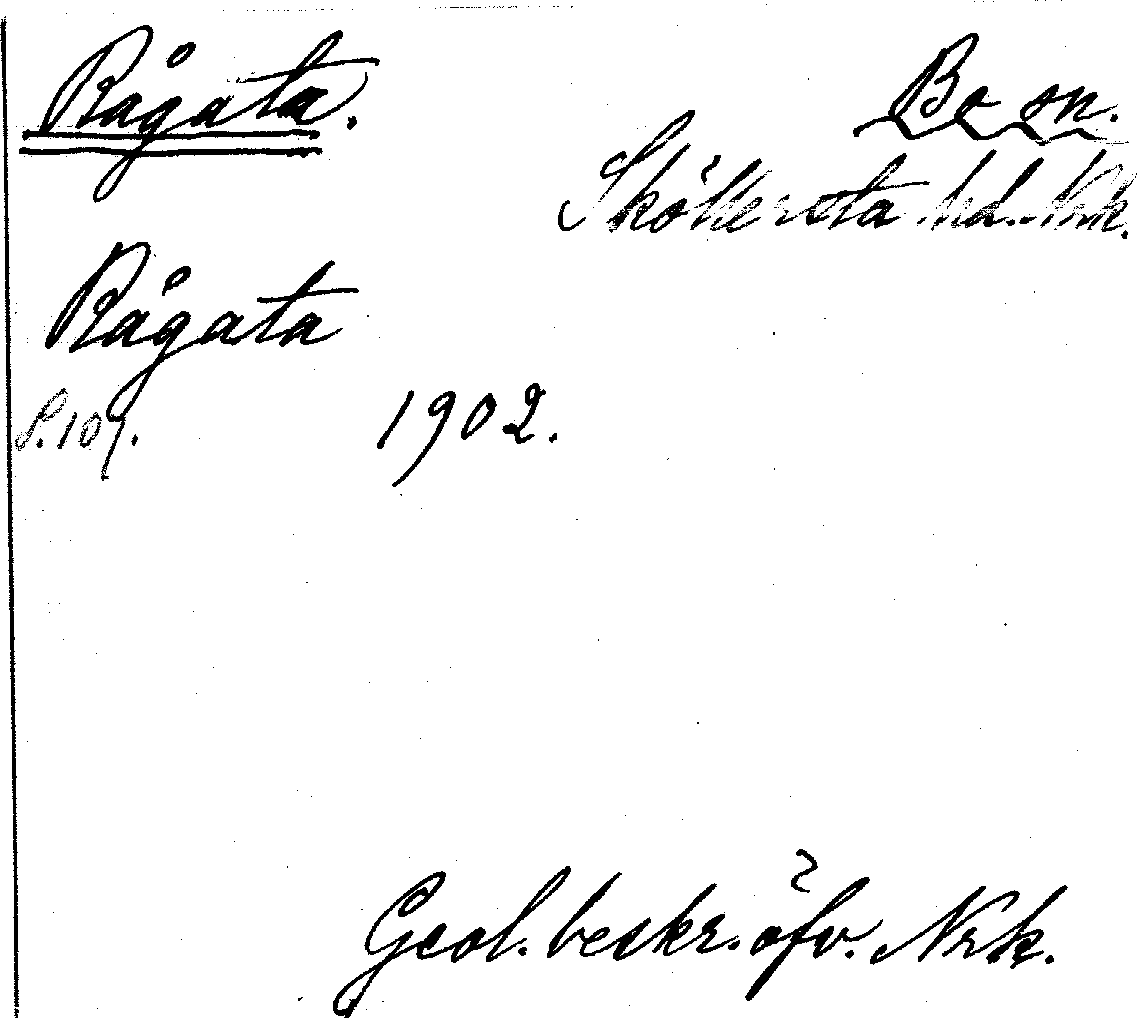 Rågata.
Bo sn.
Sköllersta hd. Nrk.
Rågata
S. 107.
1902.
Geol. beskr. öfv. Nrk.